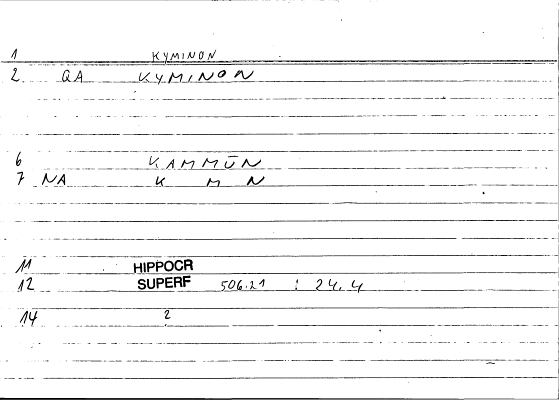 1 KYMINON
2 QA KYMINON
6 KAMMŪN
7 NA K M N
11 HIPPOCR
12 SUPERF 506.21 : 24,4
14 2